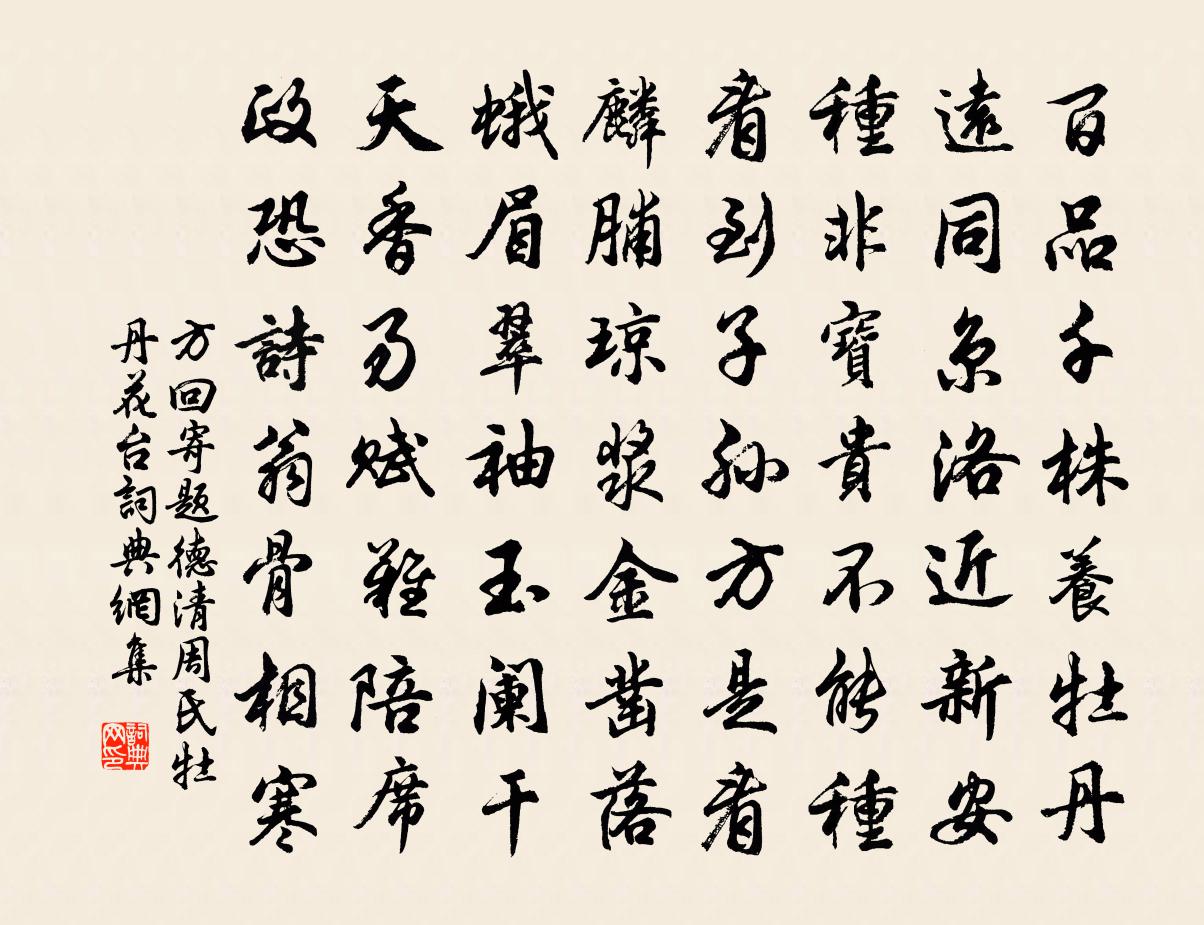 百品千株養牡丹
遠同京洛近新安
種非寶貴不能種
看到子孙方是看
麟脯琼浆金凿落
蛾眉翠袖玉阑干
天香易赋難陪席
政恐詩翁骨相寒
方回寄题德清周氏牡
丹花台詞典網集
詞典网印